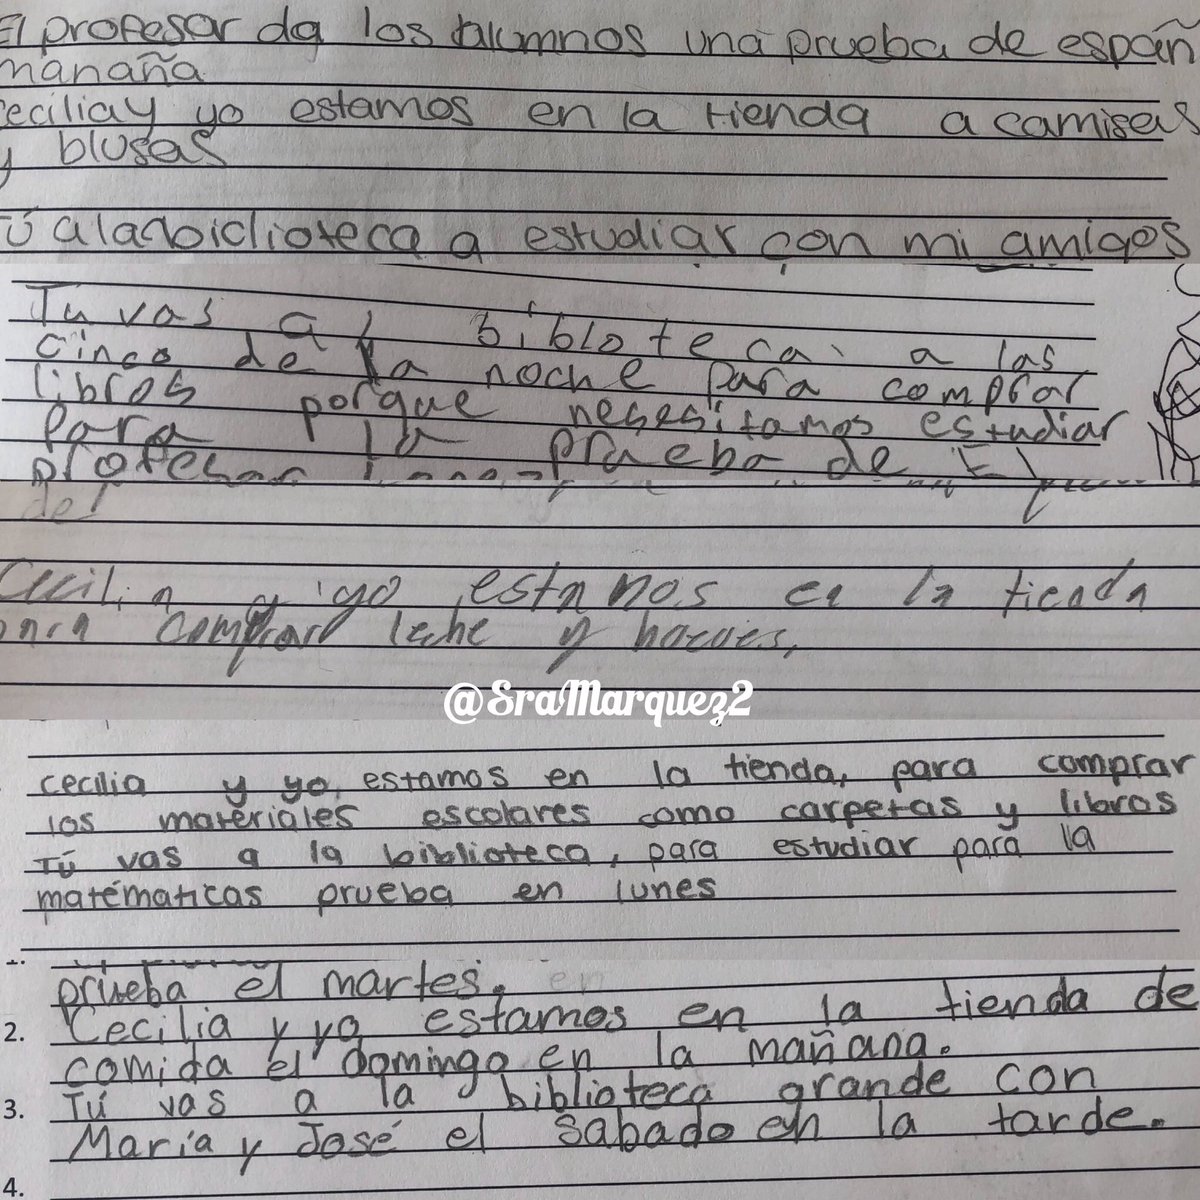 El profesor da los alumnos una prueba de españ
manaña
ecilia y yo estamos en la tienda a camisas
y blusas
Tú a la biclioteca a estudiar con mi amigos
Tu vas a bibloteca a las
cinco de la noche para comprar
libros porque necesitamos estudiar
para la prueba de El
profesor
del
Cecilia y yo estamos en la tienda
para comprar leche y
@SraMarquez2
cecilia y yo estamos en la tienda, para comprar
los materiales escolares como carpetas y libros
Tú vas a la biblioteca, para estudiar para la
matématicas prueba en lunes
prueba el martes. en
2. Cecilia y yo estamos en la tienda de
comida el domingo en la mañana.
3. Tú vas a la biblioteca grande con
María y José el sabado en la tarde.
4.